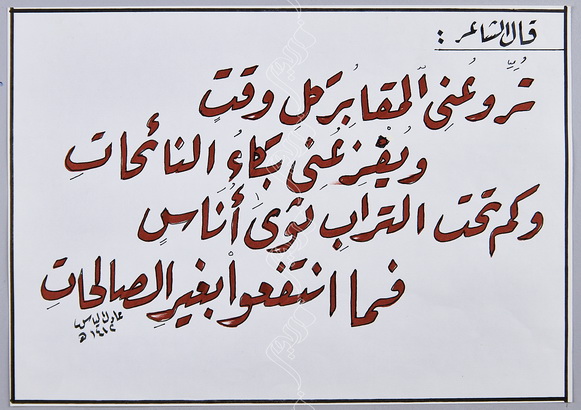 قال الشاعر :
تُروِّعني المقابر كل وقتٍ
ويُفْزِعُني بكاءُ النائحاتِ
وكم تحت الترابِ ثوى أُناسٍ
فما انتفعوا بغيرِ الصالحاتِ
عادل الياس
١٤١٢ هـ